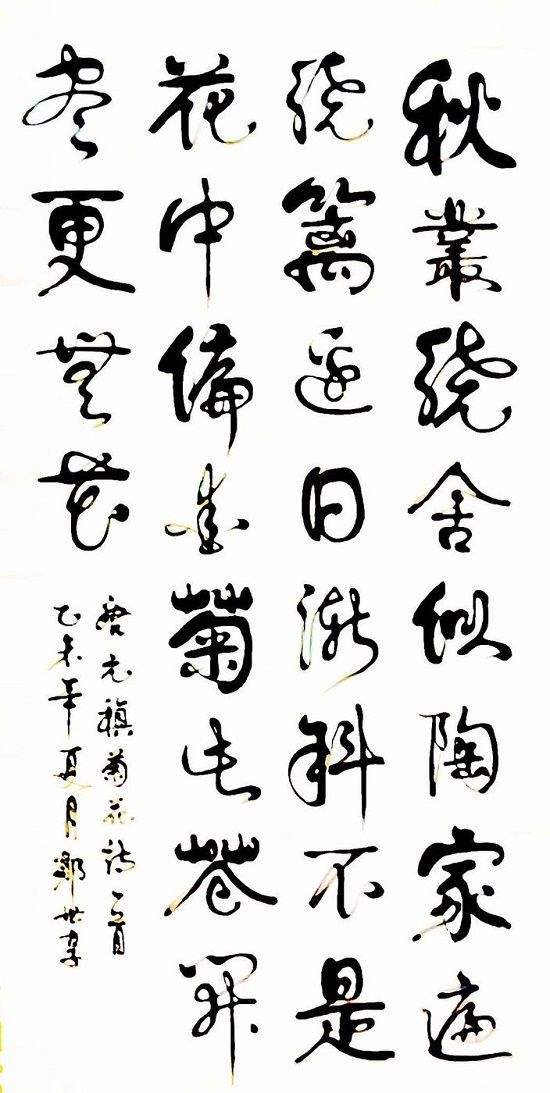 秋叢繞舍似陶家遍
繞籬邊日漸斜不是
花中偏愛菊此花開
盡更無花
唐元稹菊花詩一首
乙未年夏月